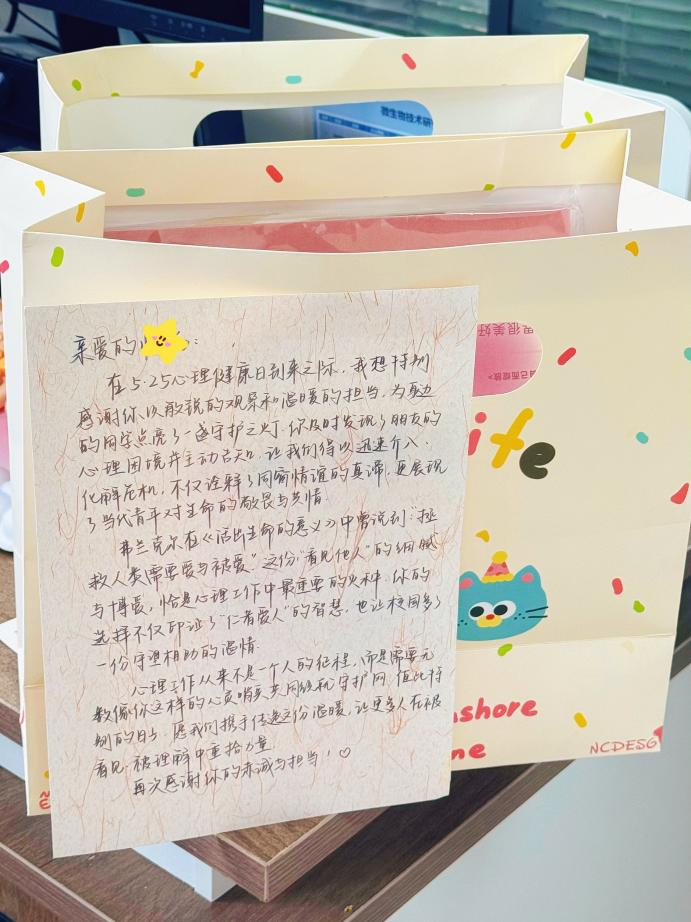 微生物技术研
界很美好
ife
nshore
ne
NCDESG
亲爱的
在5·25心理健康日到来之际，我想特别
感谢你以敏锐的观察和温暖的担当，为身边
的同学点亮了一盏守护之灯.你及时发现了朋友的
心理困境并主动告知，让我们得以迅速介入、
化解危机，不仅诠释了同窗情谊的真谛，更展现
了当代青年对生命的敬畏与共情.
弗兰克尔在《活出生命的意义》中曾说到“拯
救人类需要爱与被爱”这份“看见他人”的细腻
与博爱，恰是心理工作中最重要的火种.你的
选择不仅印证了“仁者爱人”的智慧，也让校园多了
一份守望相助的温情.
心理工作从来不是一个人的征程，而是需要无
数像你这样的心灵哨兵共同织就守护网.值此特
别的日子，愿我们携手传递这份温暖，让更多人在被
看见、被理解中重拾力量.
再次感谢你的赤诚与担当！♡